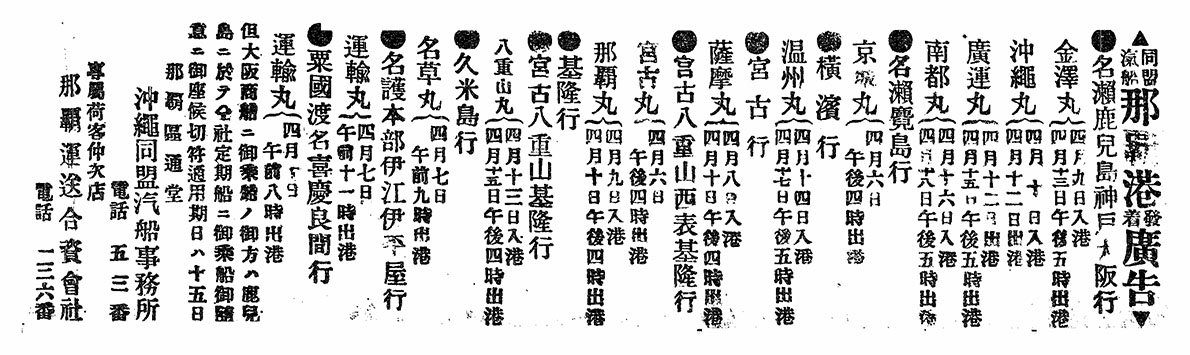 ▲同盟汽船那覇港發着廣告▼
●名瀬鹿兒島神戸大阪行
金澤丸 四月九日入港
四月十三日午後五時出港
沖繩丸 四月十日入港
四月十二日出港
廣運丸 四月十二日出港
四月十五日午後五時出港
南都丸 四月十六日入港
四月十八日午後五時出港
●名瀬覽島行
京城丸 四月六日
午後四時出港
●横濱行
温州丸 四月十四日入港
四月十七日午後五時出港
●宮古行
薩摩丸 四月八日入港
四月十日午後四時出港
●宮古八重山西表基隆行
宮古丸 四月六日
午後四時出港
那覇丸 四月九日入港
四月十日午後四時出港
●基隆行
●宮古八重山基隆行
八重山丸 四月十三日入港
四月十五日午後四時出港
●久米島行
名草丸 四月七日
午前九時出港
●名護本部伊江伊平屋行
運輸丸 四月七日
午前十一時出港
●粟國渡名喜慶良間行
運輸丸 四月
午前八時出港
但大阪商船ニ御乘船ノ御方ハ鹿兒
島ニ於テ仝社定期船ニ御乘船御隨
意ニ御座候切符通用期日ハ十五日
那覇區通堂
沖繩同盟汽船事務所
電話 五三番
專屬荷客仲次店
那覇運送合資會社
電話 一三六番